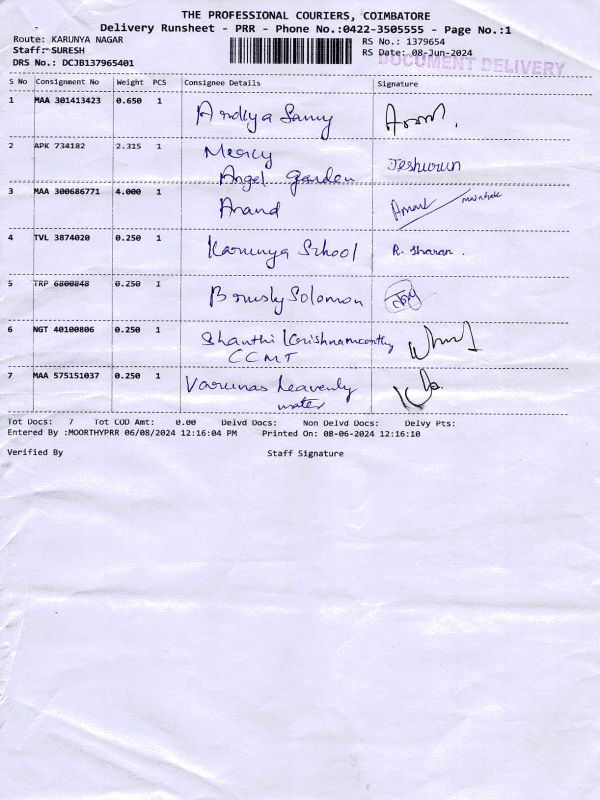 THE PROFESSIONAL COURIERS, COIMBATORE
Delivery Runsheet - PRR - Phone No.:0422-3505555 - Page No.:1
Route: KARUNYA NAGAR RS No.: 1379654
Staff: SURESH RS Date: 08-Jun-2024
DOCUMENT DELIVERY
DRS No.: DCJB137965401
S No Consignment No Weight PCS Consignee Details Signature
1 MAA 301413423 0.650 1 Samy
2 APK 734182 2.315 1 Mercy
Angel Garden Jeshurun
3 MAA 300686771 4.000 1 Anand
4 TVL 3874020 0.250 1 Karunya School R. Sharan.
5 TRP 6800848 0.250 1 Solomon Jay
6 NGT 40100806 0.250 1 Shanthi Krishnamoorthy
CCMT
7 MAA 575151037 0.250 1 Varunas heavenly
water
Tot Docs: 7 Tot COD Amt: 0.00 Delvd Docs: Non Delvd Docs: Delvy Pts:
Entered By :MOORTHYPRR 06/08/2024 12:16:04 PM Printed On: 08-06-2024 12:16:10
Verified By Staff Signature